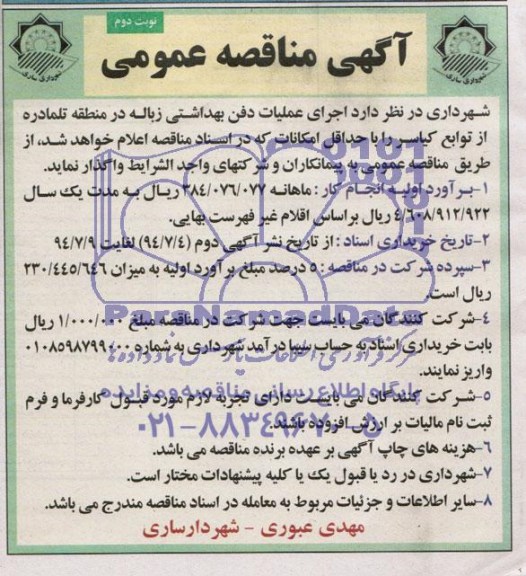 نوبت دوم
آگهی مناقصه عمومی
شهرداری ساری
شهرداری ساری
شهرداری در نظر دارد اجرای عملیات دفن بهداشتی زباله در منطقه تلمادره
از توابع کیاسر را با حداقل امکانات که در اسناد مناقصه اعلام خواهد شد، از
طریق مناقصه عمومی به پیمانکاران و شرکتهای واجد الشرایط واگذار نماید.
۱-برآورد اولیه انجام کار : ماهانه ۳۸۴/۰۷۶/۰۷۷ ریال به مدت یک سال
۴/۶۰۸/۹۱۲/۹۲۲ ریال براساس اقلام غیر فهرست بهایی.
۲-تاریخ خریداری اسناد : از تاریخ نشر آگهی دوم (۹۴/۷/۴) لغایت ۹۴/۷/۹
۳-سپرده شرکت در مناقصه : ۵ درصد مبلغ برآورد اولیه به میزان ۲۳۰/۴۴۵/۶۴۶
ریال است.
۴-شرکت کنندگان می بایست جهت شرکت در مناقصه مبلغ ۱/۰۰۰/۰۰۰ ریال
بابت خریداری اسناد به حساب سیبا درآمد شهرداری به شماره ۰۱۰۸۵۹۸۷۹۹۰۰۰
واریز نمایند.
۵-شرکت کنندگان می بایست دارای تجربه لازم مورد قبول کارفرما و فرم
ثبت نام مالیات بر ارزش افزوده باشند.
۶-هزینه های چاپ آگهی بر عهده برنده مناقصه می باشد.
۷-شهرداری در رد یا قبول یک یا کلیه پیشنهادات مختار است.
۸-سایر اطلاعات و جزئیات مربوط به معامله در اسناد مناقصه مندرج می باشد.
مهدی عبوری - شهردارساری
ParsNamadData
پایگاه اطلاع رسانی مناقصه و مزایده
۰۲۱-۸۸۳۴۹۶۷۰-۵